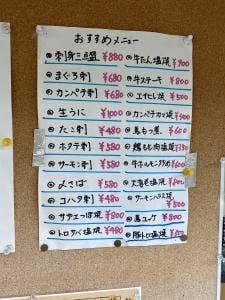 おすすめメニュー
刺身三点盛 ¥880
まぐろ刺 ¥680
カンパチ刺 ¥680
生うに ¥1000
たこ刺 ¥480
ホタテ刺 ¥580
サーモン刺 ¥580
〆さば ¥580
コハダ刺 ¥480
サザエつぼ焼 ¥800
トロサバ塩焼 ¥480
牛たん塩焼 ¥900
牛ステーキ ¥800
エイヒレ焼 ¥500
カンパチカマ焼 ¥900
鳥もつ煮 ¥600
鶏もも肉塩焼
牛ホルモン炒め ¥600
大海老塩焼
サーモンハラス焼 ¥800
鳥ユッケ ¥800
豚トロ塩焼